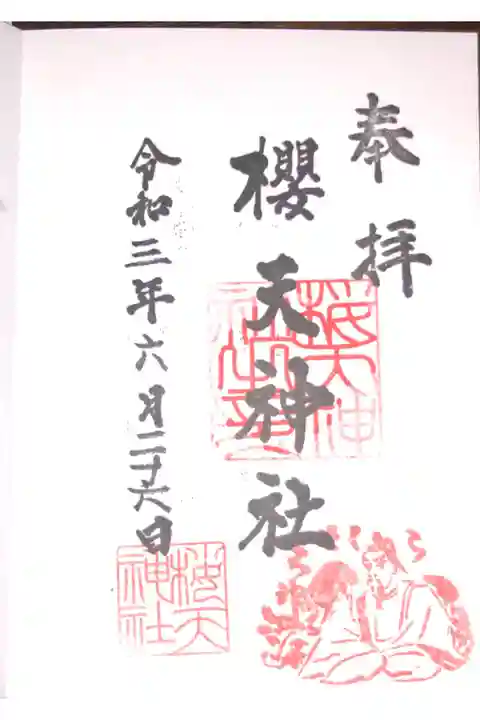 奉拝
櫻天神社
令和三年六月二十六日
櫻天神社